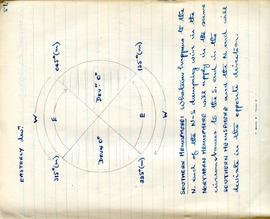 EASTERLY
W
W
315°(M)
045°(M)
E
DEVN "O"
DEVN "O"
E
225°(M)
135°(M)
W
W
SOUTHERN HEMISPHERE: Whatever happens to the
N. end of the N-S damping wire in the
NORTHERN HEMISPHERE will apply in the same
circumstances to the S. end in the
SOUTHERN HEMISPHERE and the N. end will
deviate in the opposite direction.